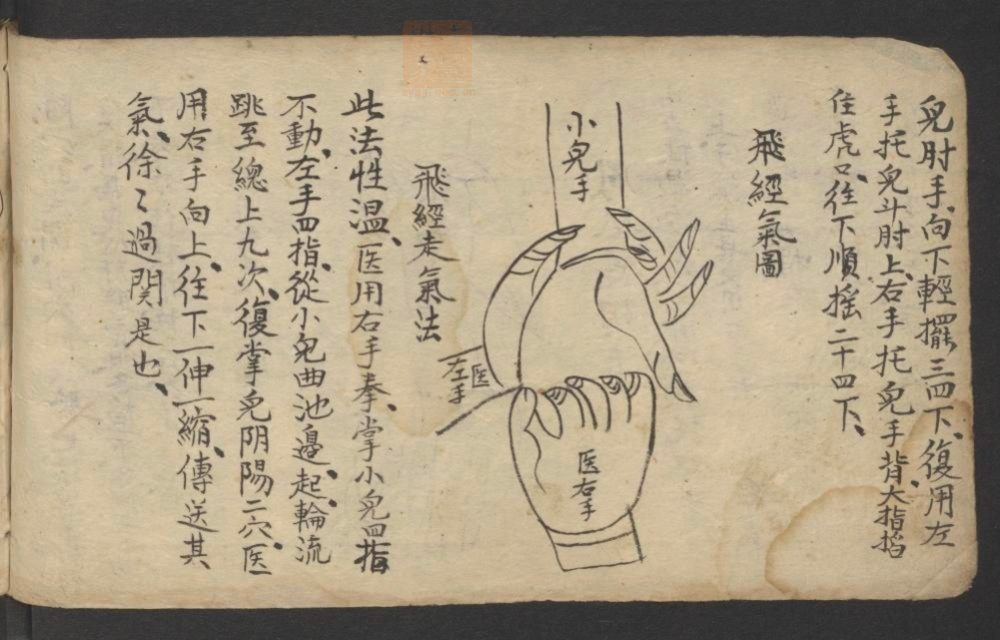 兒肘手、向下輕擺三四下、復用左
手托兒斗肘上、右手托兒手背、大指掐
住虎口、往下順搖二十四下、
飛經氣圖
小兒手
医左手
医右手
飛經走氣法
此法性温、医用右手拳、掌小兒四指
不動、左手四指、從小兒曲池邊、起輪流
跳至總上九次、復掌兒阴陽二穴、医
用右手向上、往下一伸一縮、傳送其
氣、徐〻過関是也、